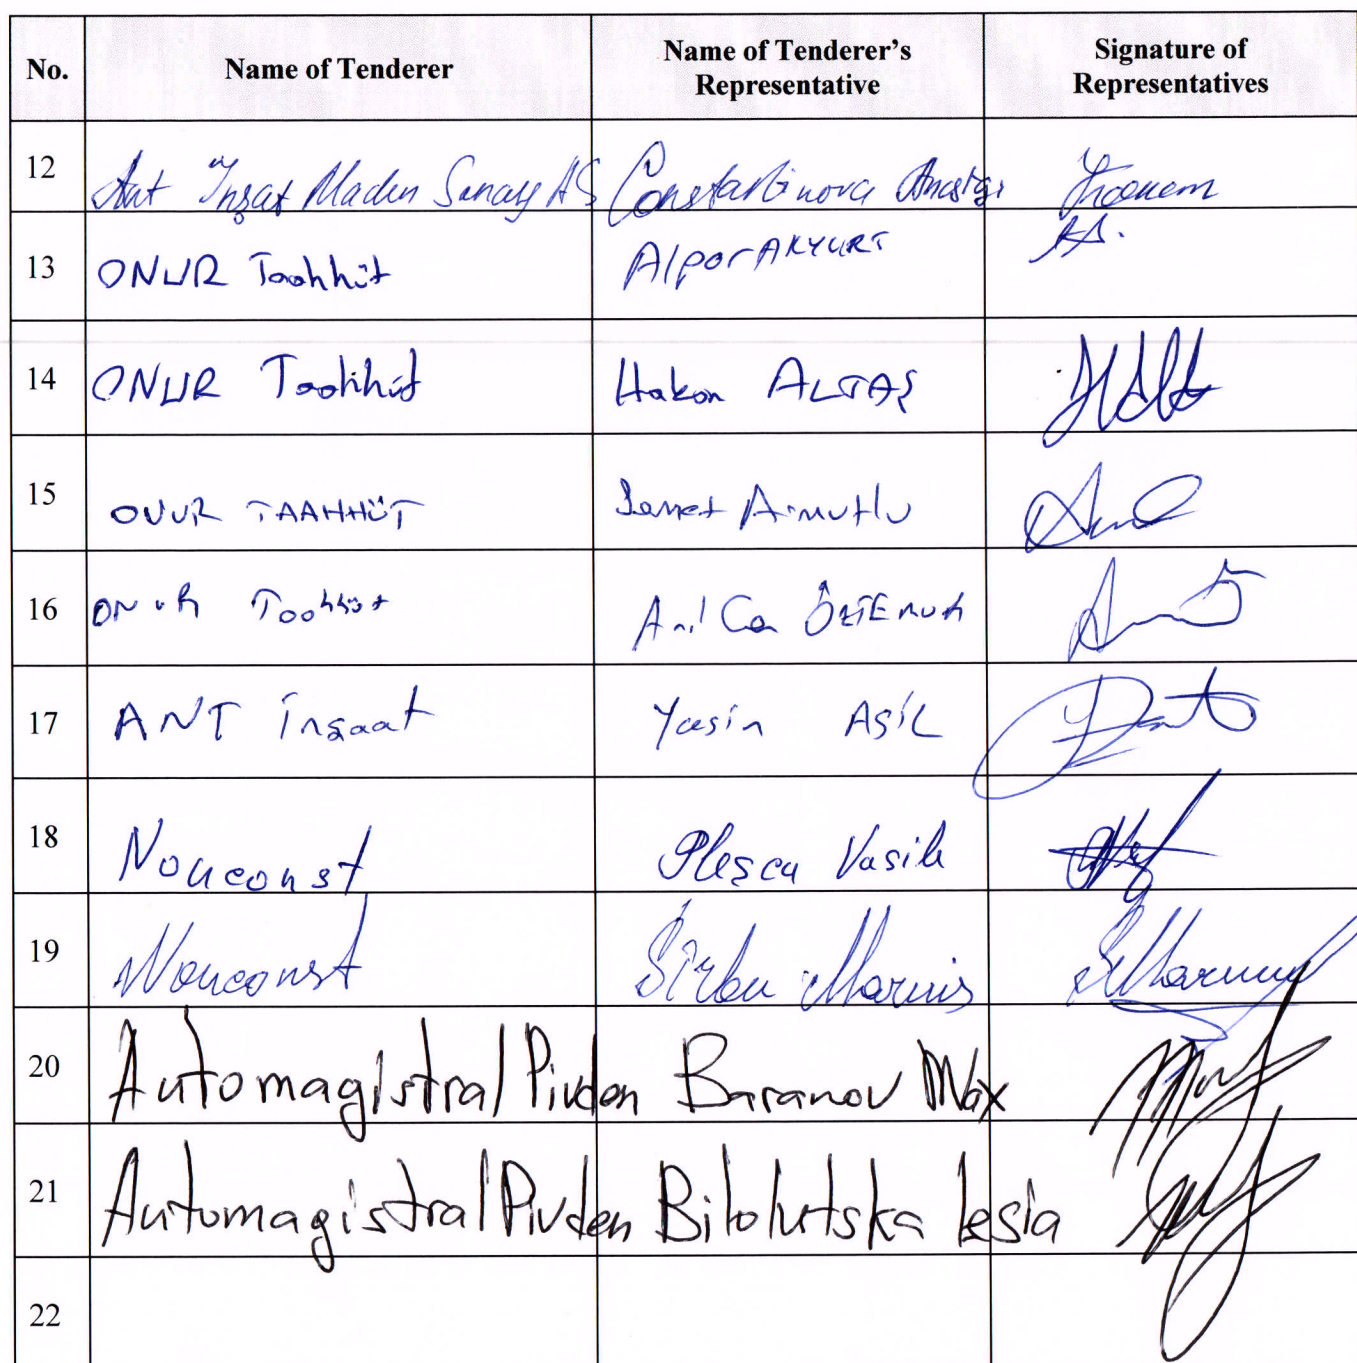 No. Name of Tenderer Name of Tenderer's Representative Signature of Representatives
12 Ant Inşaat Maden Sanay AS Constantinova
13 ONUR Taahhüt Alper AKYURT
14 ONUR Taahhüt Hakan ALTAŞ
15 ONUR TAAHHÜT Samet Armutlu
16 ONUR Taahhüt Anıl Can ÖZTEMUR
17 ANT inşaat Yasin ASİL
18 Nouconst Plesca Vasile
19 Nouconst Sîrbu Marin
20 Automagistral Pivden Baranov Max
21 Automagistral Pivden Bilolutska Lesia
22